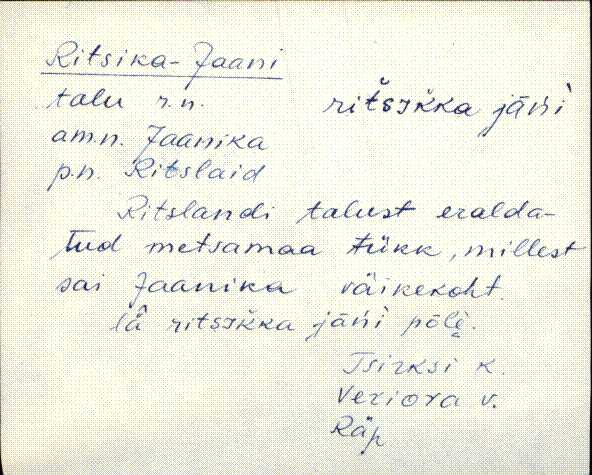 Ritsika-Jaani
talu r.n. ritšikka jāńì
am.n. Jaanika
p.n. Ritslaid
Ritslandi talust eralda-
tud metsamaa tükk, millest
sai Jaanika väikekoht.
ritsikka jāńì pōlè.
Tsirksi k.
Veriora v.
Räp